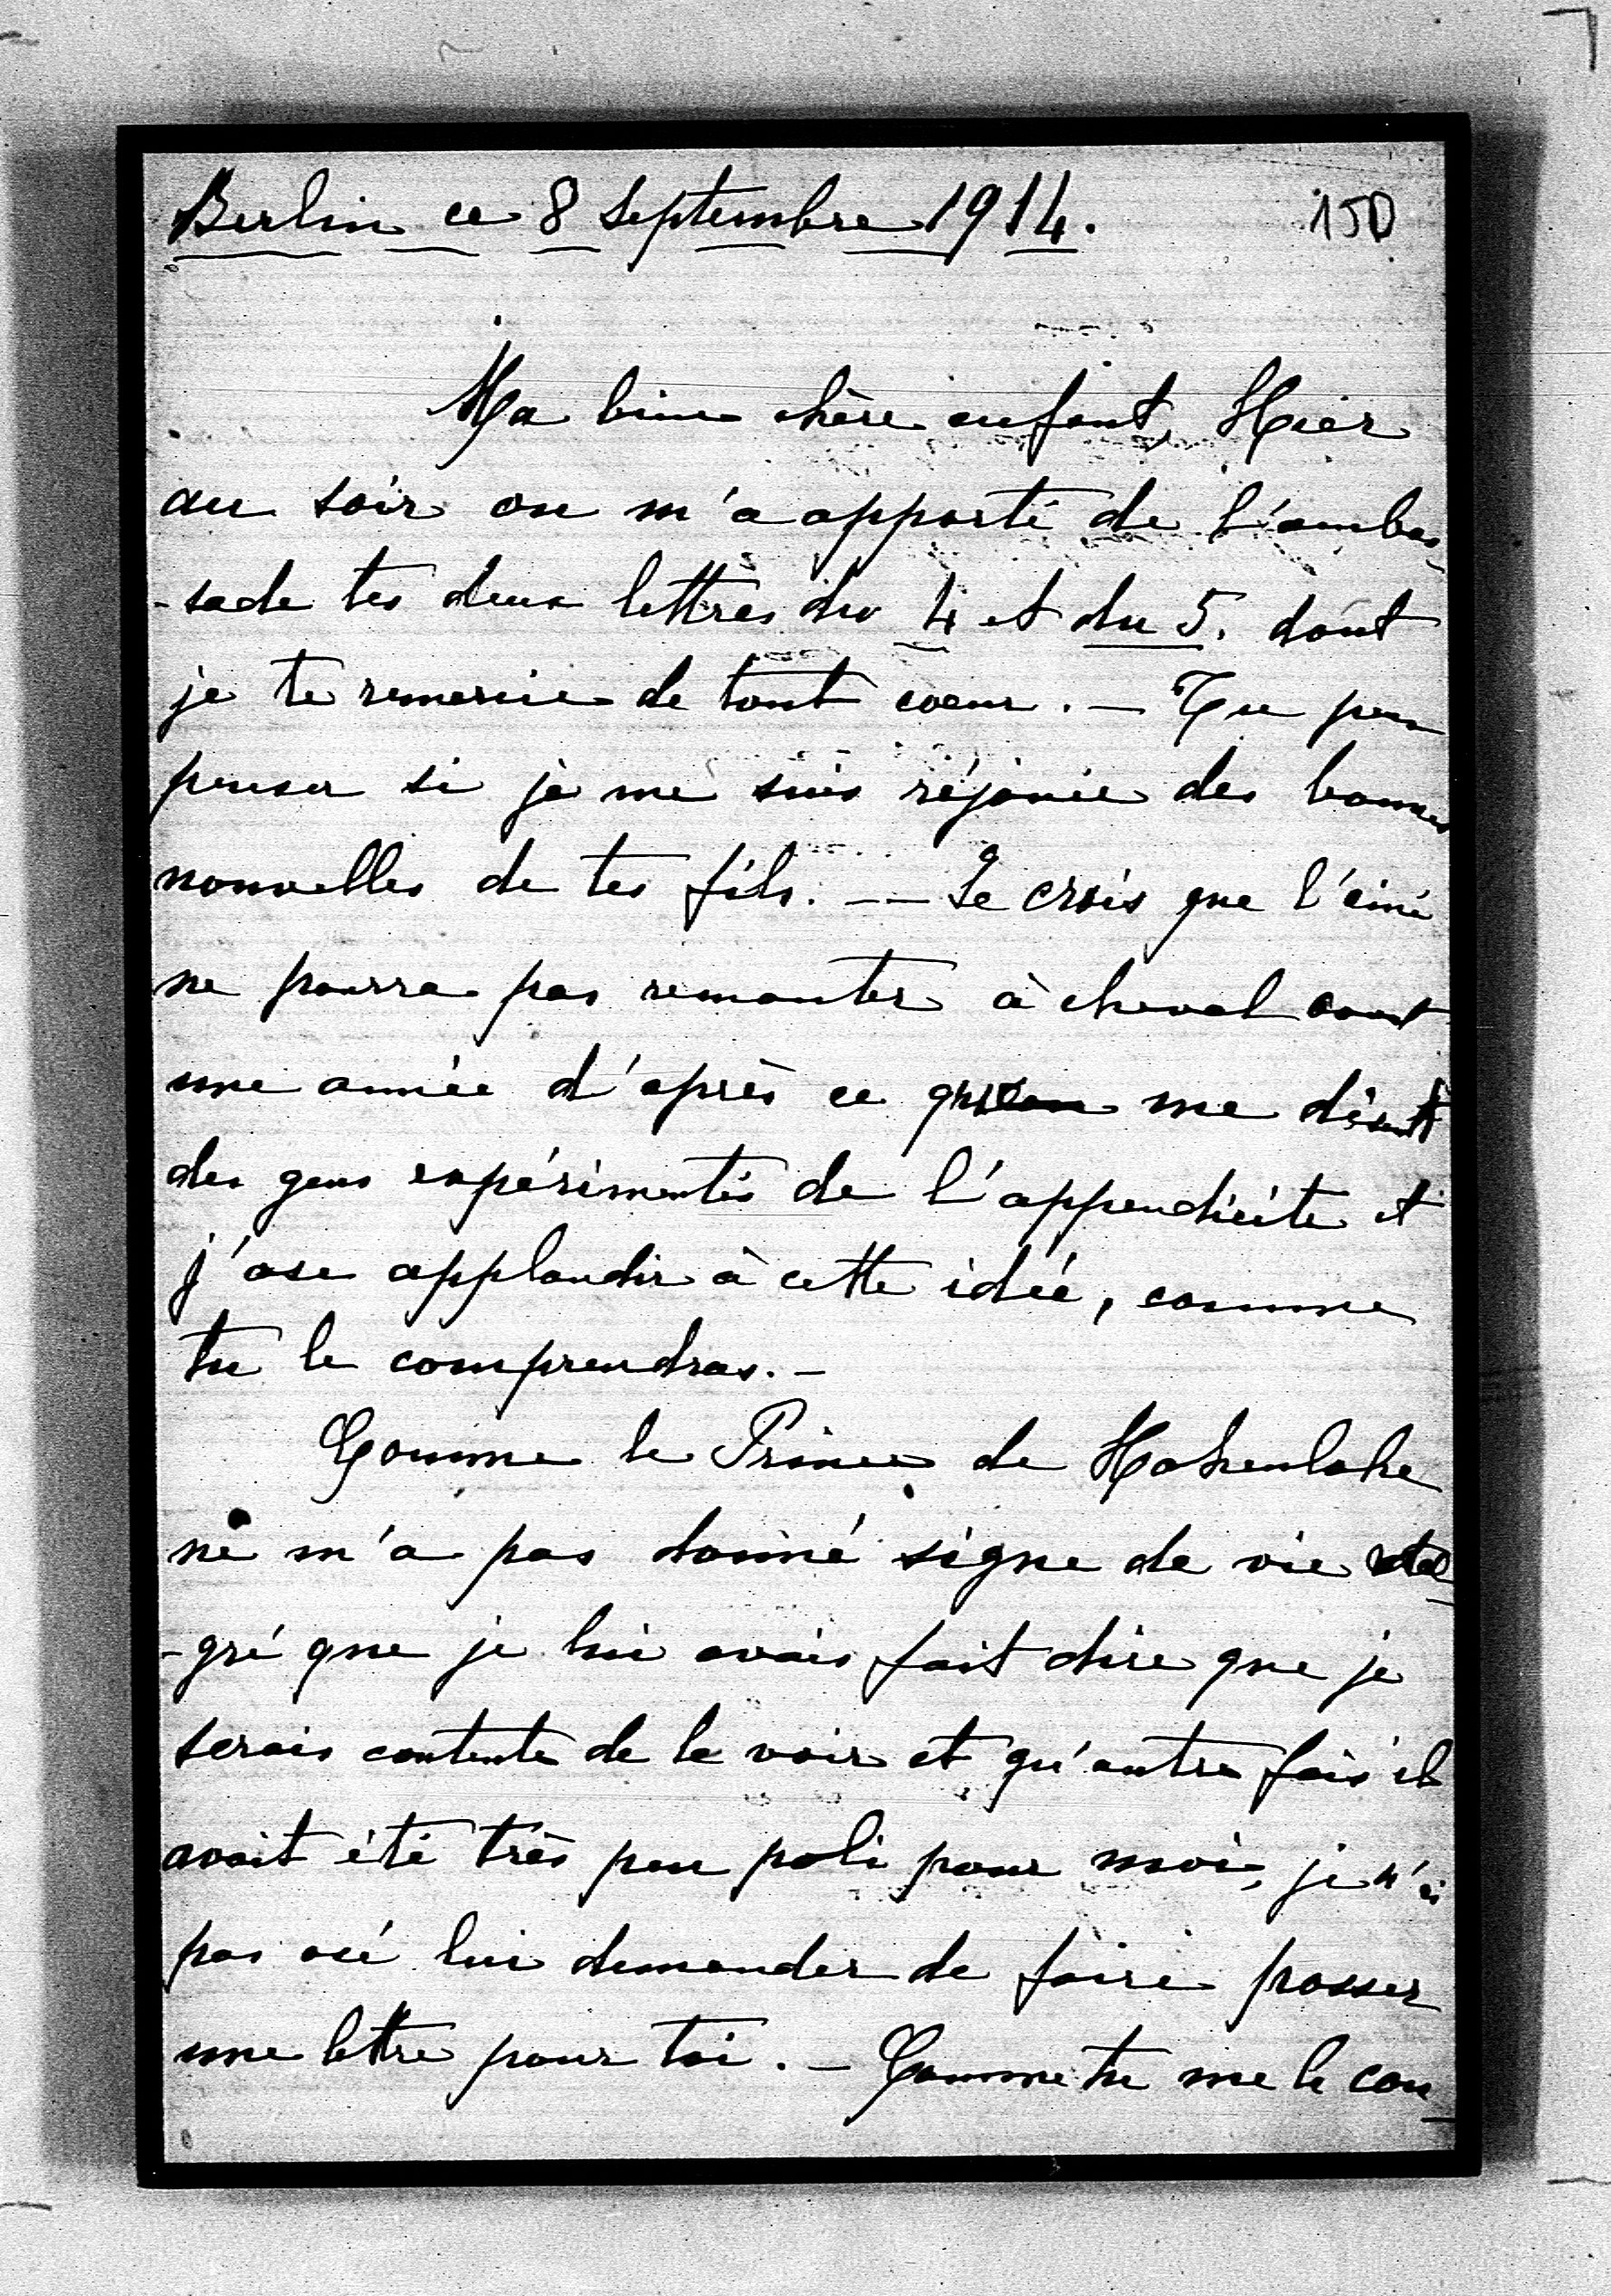 Berlin ce 8 Septembre 1914.
150
Ma bien chère enfant, Hier
au soir on m'a apporté de l'ambas-
-sade tes deux lettres du 4 et du 5. dont
je te remercie de tout coeur. — Tu peux
penser si je me suis réjouie des bonnes
nouvelles de tes fils. — Je crois que l'ainé
ne pourra pas remonter à cheval avant
une année d'après ce que me disent
des gens expérimentés de l'appendicite et
j'ose applaudir à cette idée, comme
tu le comprendras. —
Comme le Prince de Hohenlohe
ne m'a pas donné signe de vie mal-
-gré que je lui avais fait dire que je
serais contente de le voir et qu'autre fois il
avait été très peu poli pour moi, je n'ai
pas osé lui demander de faire passer
une lettre pour toi. — Comme tu me le con-